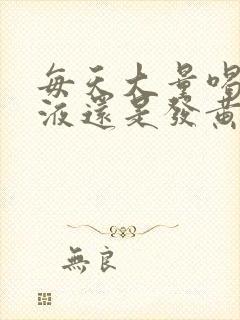 每天大量喝
液還是發黃
無良